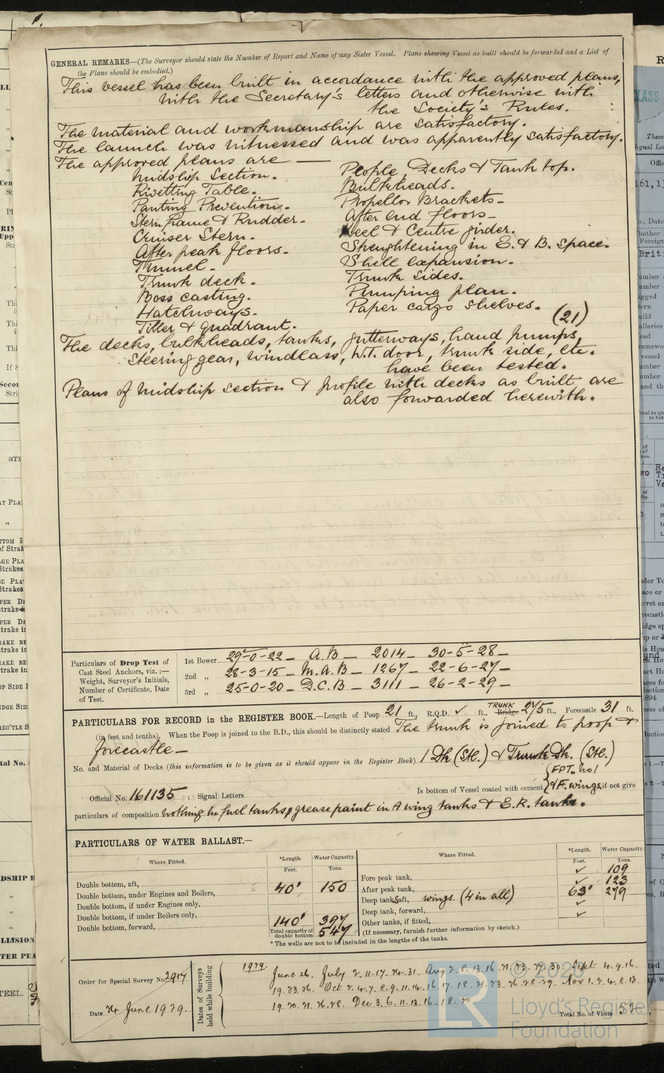 GENERAL REMARKS—(The Surveyor should state the Number of Report and Name of any Sister Vessel. Plans showing Vessel as built should be forwarded and a List of
the Plans should be embodied.)
This vessel has been built in accordance with the approved plans,
with the Secretary's letters and otherwise with
the Society's Rules.
The material and workmanship are satisfactory.
The launch was witnessed and was apparently satisfactory.
The approved plans are —
Midship Section.
Rivetting Table.
Panting Prevention.
Stern frame & Rudder.
Cruiser Stern.
After peak floors.
Tunnel.
Trunk deck.
Boss casting.
Hatchways.
Tiller & Quadrant.
Decks & Tank top.
Bulkheads.
Propellor Brackets.
After end floors.
Keel & Centre girder.
Strenghtening in E. & B. Space.
Shell expansion.
Trunk Sides.
Pumping plan.
Paper cargo shelves. (21)
The decks, bulkheads, tanks, gutterways, hand pumps,
Steering gear, windlass, W.T. door, trunk side, etc.
have been tested.
Plans of midship section & profile with decks as built are
also forwarded herewith.
Particulars of Drop Test of Cast Steel Anchors, viz.:— Weight, Surveyor's Initials, Number of Certificate, Date of Test.
1st Bower 29-0-22 — A.B — 2014 — 30-5-28
2nd „ 28-3-15 — M.A.B — 1267 — 22-6-27
3rd „ 25-0-20 — D.C.B — 3111 — 26-2-29
PARTICULARS FOR RECORD in the REGISTER BOOK.—Length of Poop 21 ft., R.Q.D. ✓ ft., TRUNK Bridge 275 ft., Forecastle 31 ft.
(in feet and tenths). When the Poop is joined to the B.D., this should be distinctly stated The trunk is joined to poop &
forecastle—
No. and Material of Decks (this information is to be given as it should appear in the Register Book). 1 Dk (Stl.) & Trunk Dk. (Stl.)
Official No. 161135 ; Signal Letters Is bottom of Vessel coated with cement F.P.T. & F. wings, if not give
particulars of composition nothing in fuel tanks, grease paint in A wing tanks & E.R. tanks.
PARTICULARS OF WATER BALLAST.—
Where Fitted. *Length. Feet. Water Capacity. Tons.
Double bottom, aft, 40' 150
Double bottom, under Engines and Boilers,
Double bottom, if under Engines only,
Double bottom, if under Boilers only,
Double bottom, forward, 140' 397
Total capacity of double bottom 547
Where Fitted. *Length. Feet. Water Capacity. Tons.
Fore peak tank, ✓ 109
After peak tank, ✓ 123
Deep tank, aft, wings. (4 in all) 63' 279
Deep tank, forward, ✓
Other tanks, if fitted, ✓
(If necessary, furnish further information by sketch.)
* The wells are not to be included in the lengths of the tanks.
Order for Special Survey No. 3917
Date 24 June 1929.
Dates of Surveys held while building
1929
Total No. of Visits
© 2020
LR
Lloyd's Register
Foundation